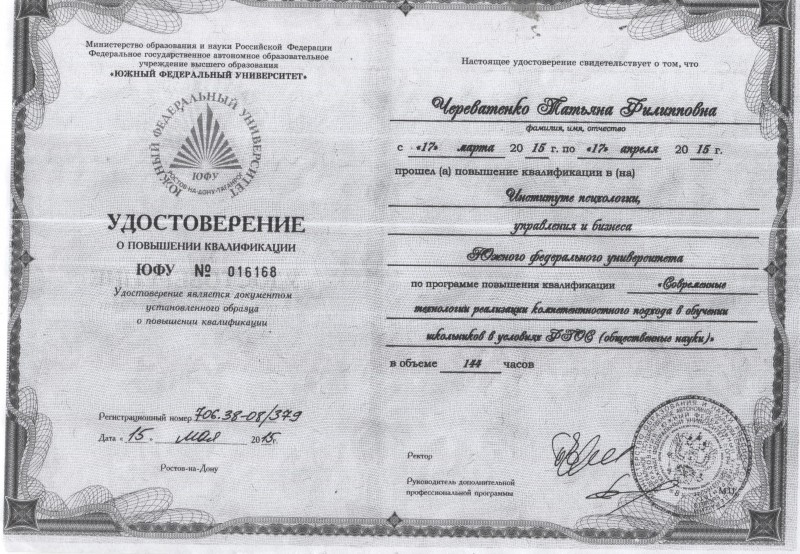 Министерство образования и науки Российской Федерации
Федеральное государственное автономное образовательное
учреждение высшего образования
«ЮЖНЫЙ ФЕДЕРАЛЬНЫЙ УНИВЕРСИТЕТ»
ЮЖНЫЙ ФЕДЕРАЛЬНЫЙ УНИВЕРСИТЕТ
ЮФУ
РОСТОВ-НА-ДОНУ-ТАГАНРОГ
УДОСТОВЕРЕНИЕ
О ПОВЫШЕНИИ КВАЛИФИКАЦИИ
ЮФУ № 016168
Удостоверение является документом
установленного образца
о повышении квалификации
Регистрационный номер 706.38-08/379
Дата «15» мая 2015г.
Ростов-на-Дону
Настоящее удостоверение свидетельствует о том, что
Череватенко Татьяна Филипповна
фамилия, имя, отчество
с «17» марта 2015 г. по «17» апреля 2015 г.
прошел (а) повышение квалификации в (на)
Институте психологии,
управления и бизнеса
Южного федерального университета
по программе повышения квалификации «Современные
технологии реализации компетентностного подхода в обучении
школьников в условиях ФГОС (общественные науки)»
в объеме 144 часов
Ректор
Руководитель дополнительной
профессиональной программы
М.П.